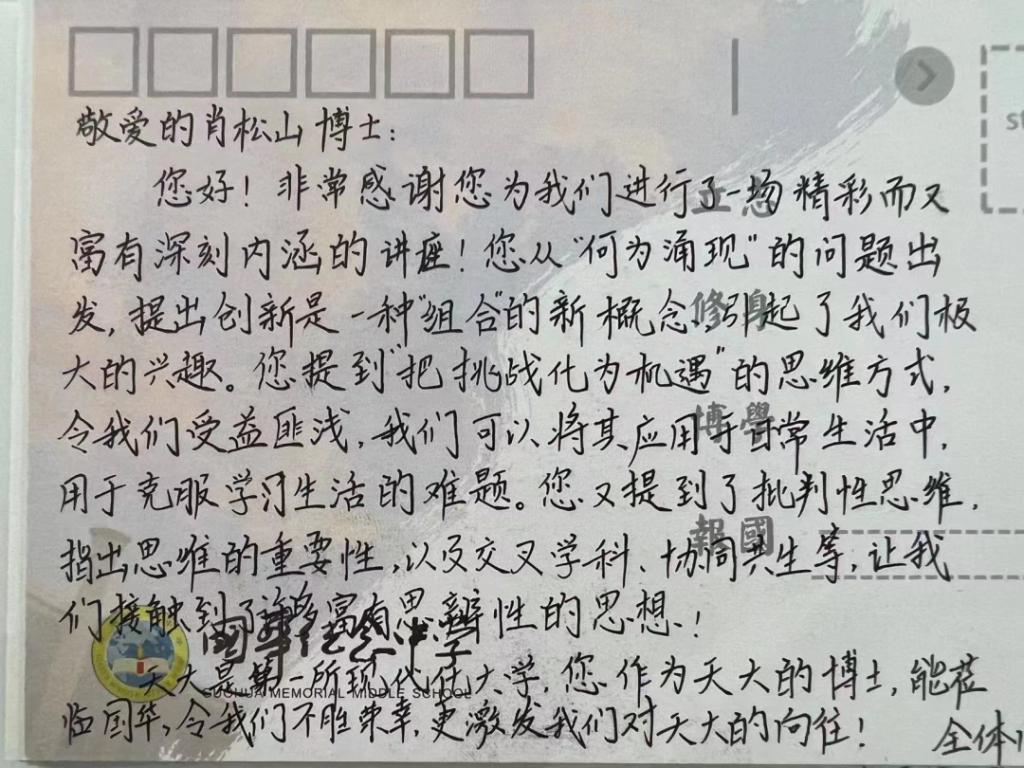 敬爱的肖松山博士:
您好!非常感谢您为我们进行了一场精彩而又
富有深刻内涵的讲座!您从"何为涌现"的问题出
发,提出创新是一种"组合"的新概念,引起了我们极
大的兴趣。您提到"把挑战化为机遇"的思维方式,
令我们受益匪浅,我们可以将其应用于日常生活中,
用于克服学习生活的难题。您又提到了批判性思维,
指出思维的重要性,以及交叉学科、协同共生等,让我
们接触到了许多富有思辨性的思想!
天大是第一所现代化大学,您作为天大的博士,能莅
临国华,令我们不胜荣幸,更激发我们对天大的向往!
全体
立
修身
博學
報國
國華纪念中学
GUOHUA MEMORIAL MIDDLE SCHOOL
st